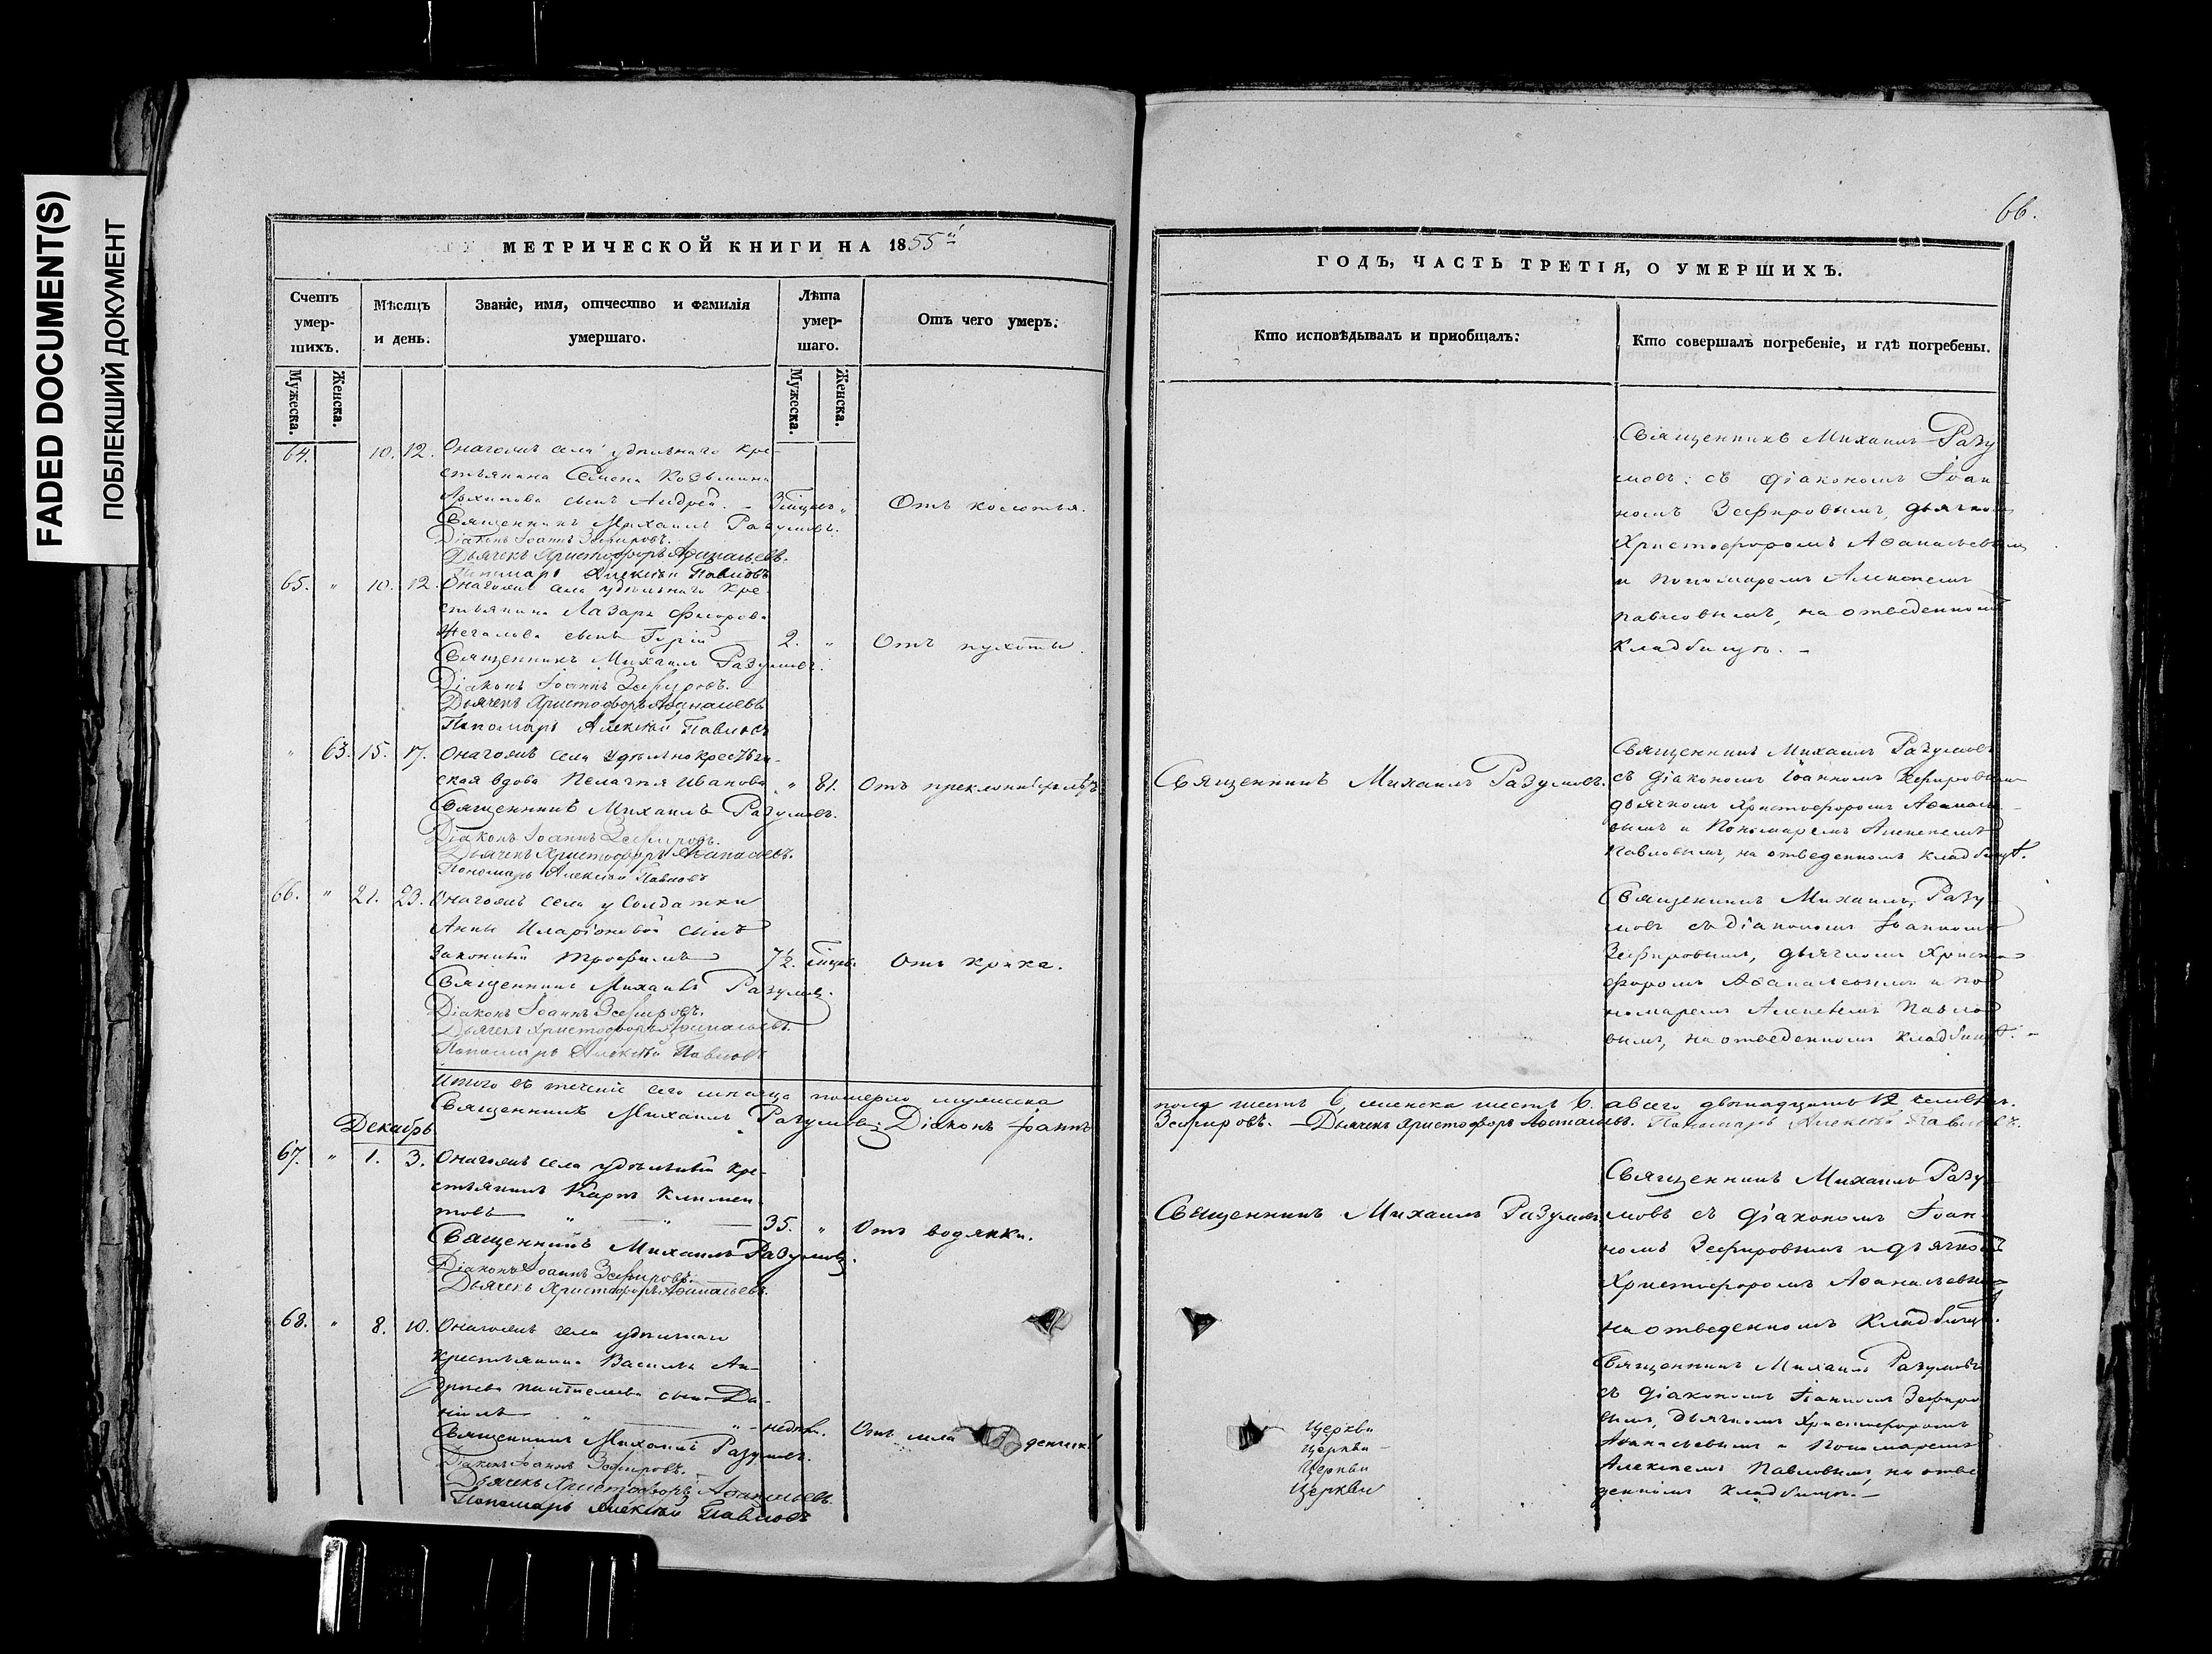 FADED DOCUMENT(S)
ПОБЛЕКШИЙ ДОКУМЕНТ
66.
МЕТРИЧЕСКОЙ КНИГИ НА 1855й
Счетъ умер-шихъ.
Мужеска.
Женска.
Мѣсяцъ и день.
Званіе, имя, отчество и фамилія умершаго.
Лѣта умер-шаго.
Мужеска.
Женска.
Отъ чего умеръ:
ГОДЪ, ЧАСТЬ ТРЕТІЯ, О УМЕРШИХЪ.
Кто исповѣдывалъ и пріобщалъ:
Кто совершалъ погребеніе, и гдѣ погребены.
64. 10. 12. Онагожъ села удѣльнаго кре-
стьянина Семена Козьмина
Архипова сынъ Андрей. - Отъ колотья.
Священникъ Михаилъ Разумовъ.
Діаконъ Іоаннъ Зефировъ.
Дьячекъ Христофоръ Аѳанасьевъ.
Пономарь Алексѣй Павловъ
Священникъ Михаилъ Разу
мовъ: съ діакономъ Іоан
номъ Зефировымъ, дьячко
Христофоромъ Аѳанасьевым
и пономаремъ Алексеемъ
Павловымъ, на отведенномъ
кладбищѣ. -
65. " 10. 12. Онагожъ села удѣльнаго кре-
стьянина Лазаря Ѳедорова
сынъ Гурій 2. " Отъ пухоты.
Священникъ Михаилъ Разумовъ.
Діаконъ Іоаннъ Зефировъ.
Дьячекъ Христофоръ Аѳанасьевъ
Пономарь Алексѣй Павловъ
" 63. 15. 17. Онагожъ села удѣльнокрестьян-
ская вдова Пелагия Иванова " 81. Отъ преклонныхъ лѣтъ
Священникъ Михаилъ Разумовъ.
Діаконъ Іоаннъ Зефировъ.
Дьячекъ Христофоръ Аѳанасьевъ.
Пономарь Алексѣй Павловъ
Священникъ Михаилъ Разумовъ.
Священникъ Михаилъ Разумовъ
съ діакономъ Іоанномъ Зефировым
дьячкомъ Христофоромъ Аѳанась
вымъ и Пономаремъ Алексеемъ
Павловымъ, на отведенномъ кладбищѣ.
66. " 21. 23. Онагожъ села у Солдатки
Анны Иларіоновой сынъ
Законный Трофимъ 7½. Отъ крика.
Священникъ Михаилъ Разумовъ.
Діаконъ Іоаннъ Зефировъ.
Дьячекъ Христофоръ Аѳанасьевъ.
Пономарь Алексѣй Павловъ
Священникъ Михаилъ Разу
мовъ съ діакономъ Іоанномъ
Зефировымъ, дьячкомъ Христо
форомъ Аѳанасьевымъ и по
номаремъ Алексеемъ Павло
вымъ, на отведенномъ кладбищѣ. -
Итого въ теченіе сего мѣсяца померло мужеска
пола шесть 6, женска шесть 6. а всего двѣнадцать 12 человѣкъ.
Священникъ Михаилъ Разумовъ. Діаконъ Іоаннъ
Зефировъ. - Дьячекъ Христофоръ Аѳанасьевъ. Пономарь Алексѣй Павловъ.
Декабрь
67. " 1. 3. Онагожъ села удѣльный кре-
стьянинъ Карпъ Климен
товъ " — " — 35. " Отъ водянки.
Священникъ Михаилъ Разумовъ.
Діаконъ Іоаннъ Зефировъ.
Дьячекъ Христофоръ Аѳанасьевъ.
Священникъ Михаилъ Разумовъ.
Священникъ Михаилъ Разу
мовъ съ діакономъ Іоан
номъ Зефировымъ и дьячкомъ
Христофоромъ Аѳанасьевым
на отведенномъ кладбищѣ.
68. " 8. 10. Онагожъ села удѣльнаго
крестьянина Василья Ан-
дреева сынъ Да-
ніилъ " — " - недѣли. Отъ
Священникъ Михаилъ Разумовъ.
Діаконъ Іоаннъ Зефировъ.
Дьячекъ Христофоръ Аѳанасьевъ.
Пономарь Алексѣй Павловъ
Церкви
Церкви -
Церкви
Церкви
Священникъ Михаилъ Разумовъ
съ діакономъ Іоанномъ Зефиро
вымъ, дьячкомъ Христофоромъ
Аѳанасьевымъ и Пономаремъ
Алексеемъ Павловымъ, на отве
денномъ кладбищѣ. -